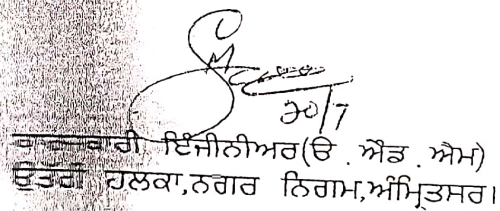 20/7
ਕਾਰਜਕਾਰੀ ਇੰਜੀਨੀਅਰ(ਓ . ਐਂਡ . ਐਮ)
ਉੱਤਰੀ ਹਲਕਾ,ਨਗਰ ਨਿਗਮ,ਅੰਮ੍ਰਿਤਸਰ।